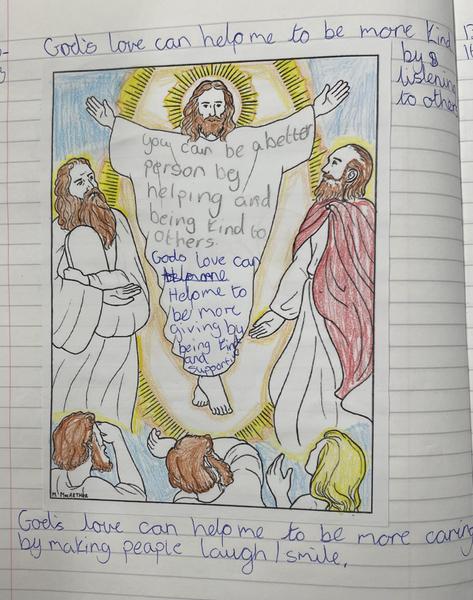 God's love can help me to be more kind
by
listening
to others
you can be a better
person by
helping and
being kind to
others.
Gods love can
Help me to
be more
giving by
being kind
and
support
M MacARTHUR
God's love can help me to be more caring
by making people laugh/smile.